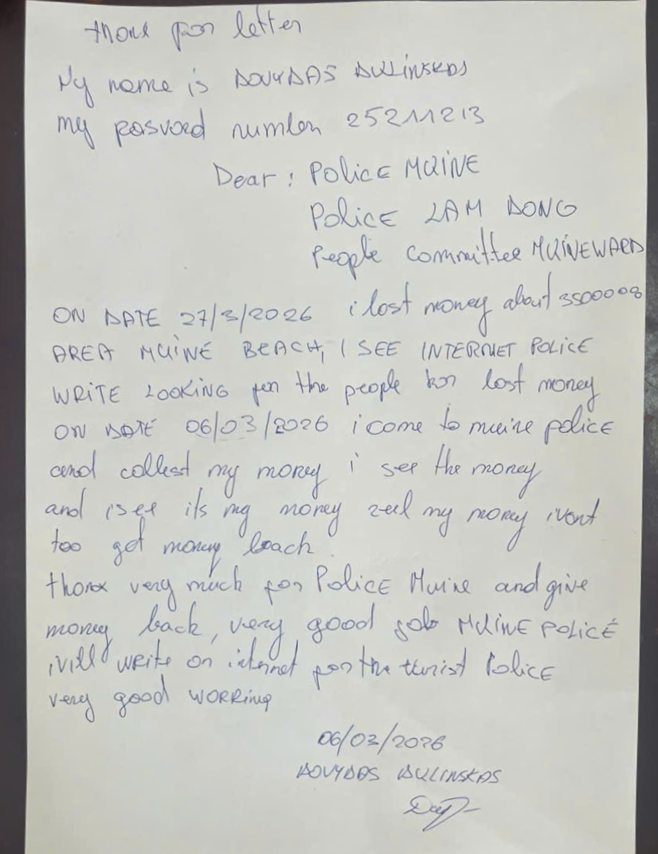 thank for letter
My name is DOVYDAS DULINSKAS
my pasvord number 25211213
Dear : POLICE MUINE
POLICE LAM DONG
People Committee MUINEWARD
ON DATE 27/3/2026 i lost money about
AREA MUINE BEACH, I SEE INTERNET POLICE
WRITE LOOKING for the people lost money
ON DATE 06/03/2026 i come to muine police
and collest my money i see the money
and i see its my money my money i vont
too get money back
thanx very much for POLICE Muine and give
money back, very good job MUINE POLICE
i vill WRITE on internet for the turist POLICE
very good WORKING
06/03/2026
DOVYDAS DULINSKAS